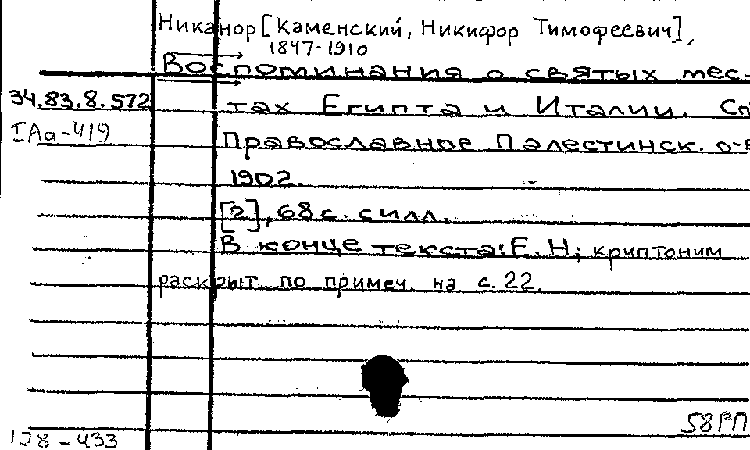 Никанор [Каменский, Никифор Тимофеевич],
1847-1910
Воспоминания о святых мес-
34.83.8.572
тах Египта и Италии. Сп
IАа-419
Православное Палестинск. о-в
1902.
[2], 68 с. силл.
В конце текста: Е. Н; криптоним
раскрыт по примеч. на с. 22.
58РП